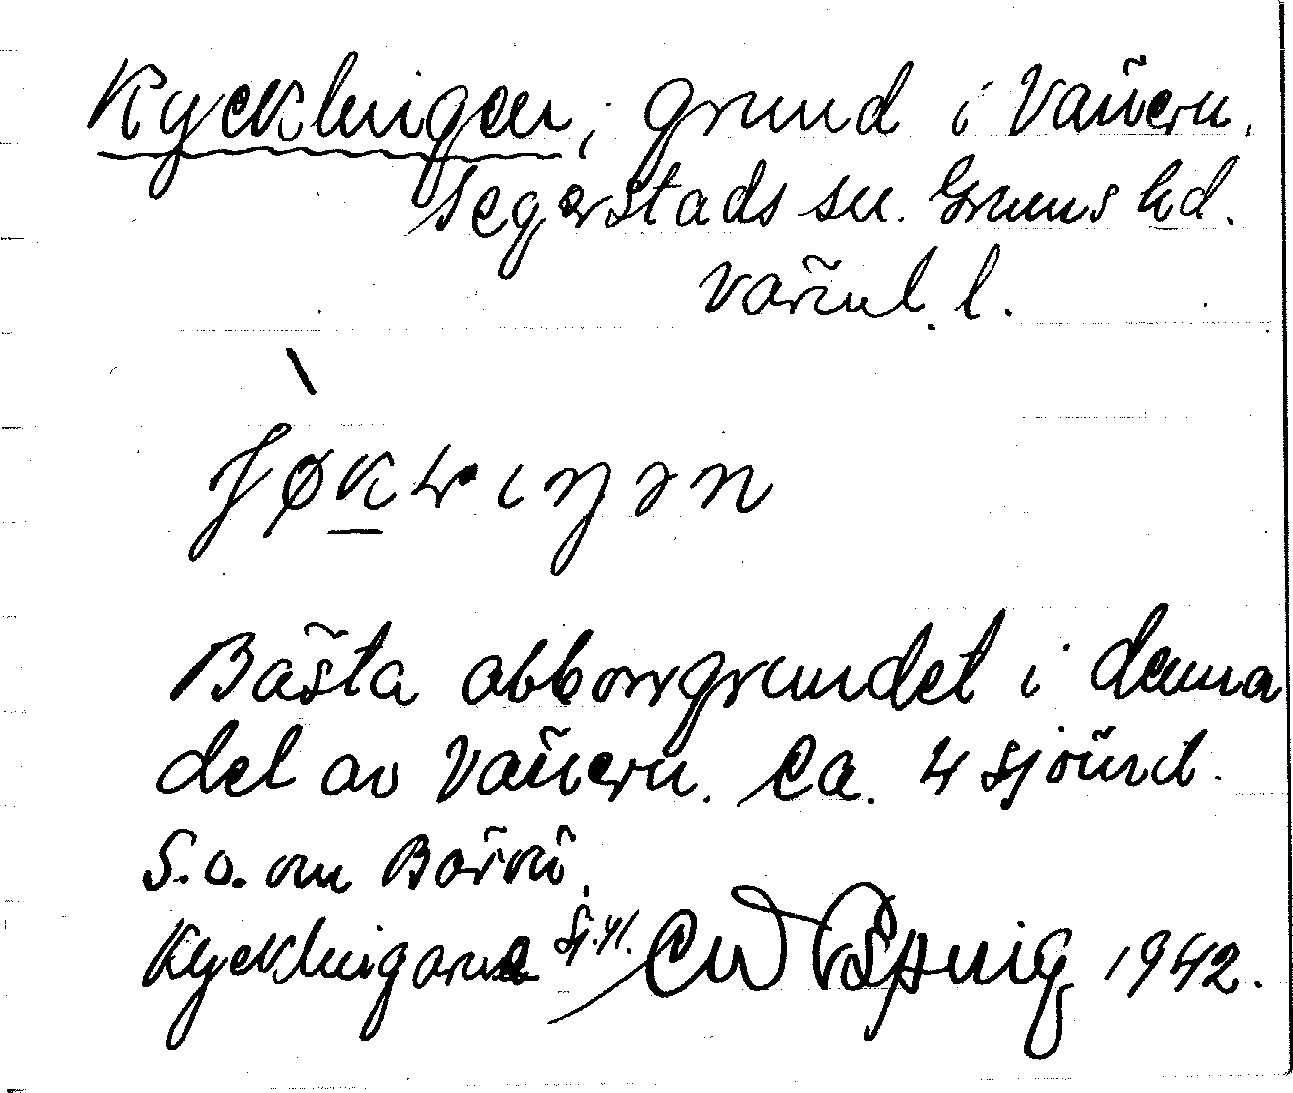 Kycklingen, grund i Vänern.
Segerstads sn. Grums hd.
Värml. l.
Bästa abborrgrundet i denna
del av Vänern. Ca. 4 sjömil.
S.o. om Börrö.
Kycklingarna 1942.